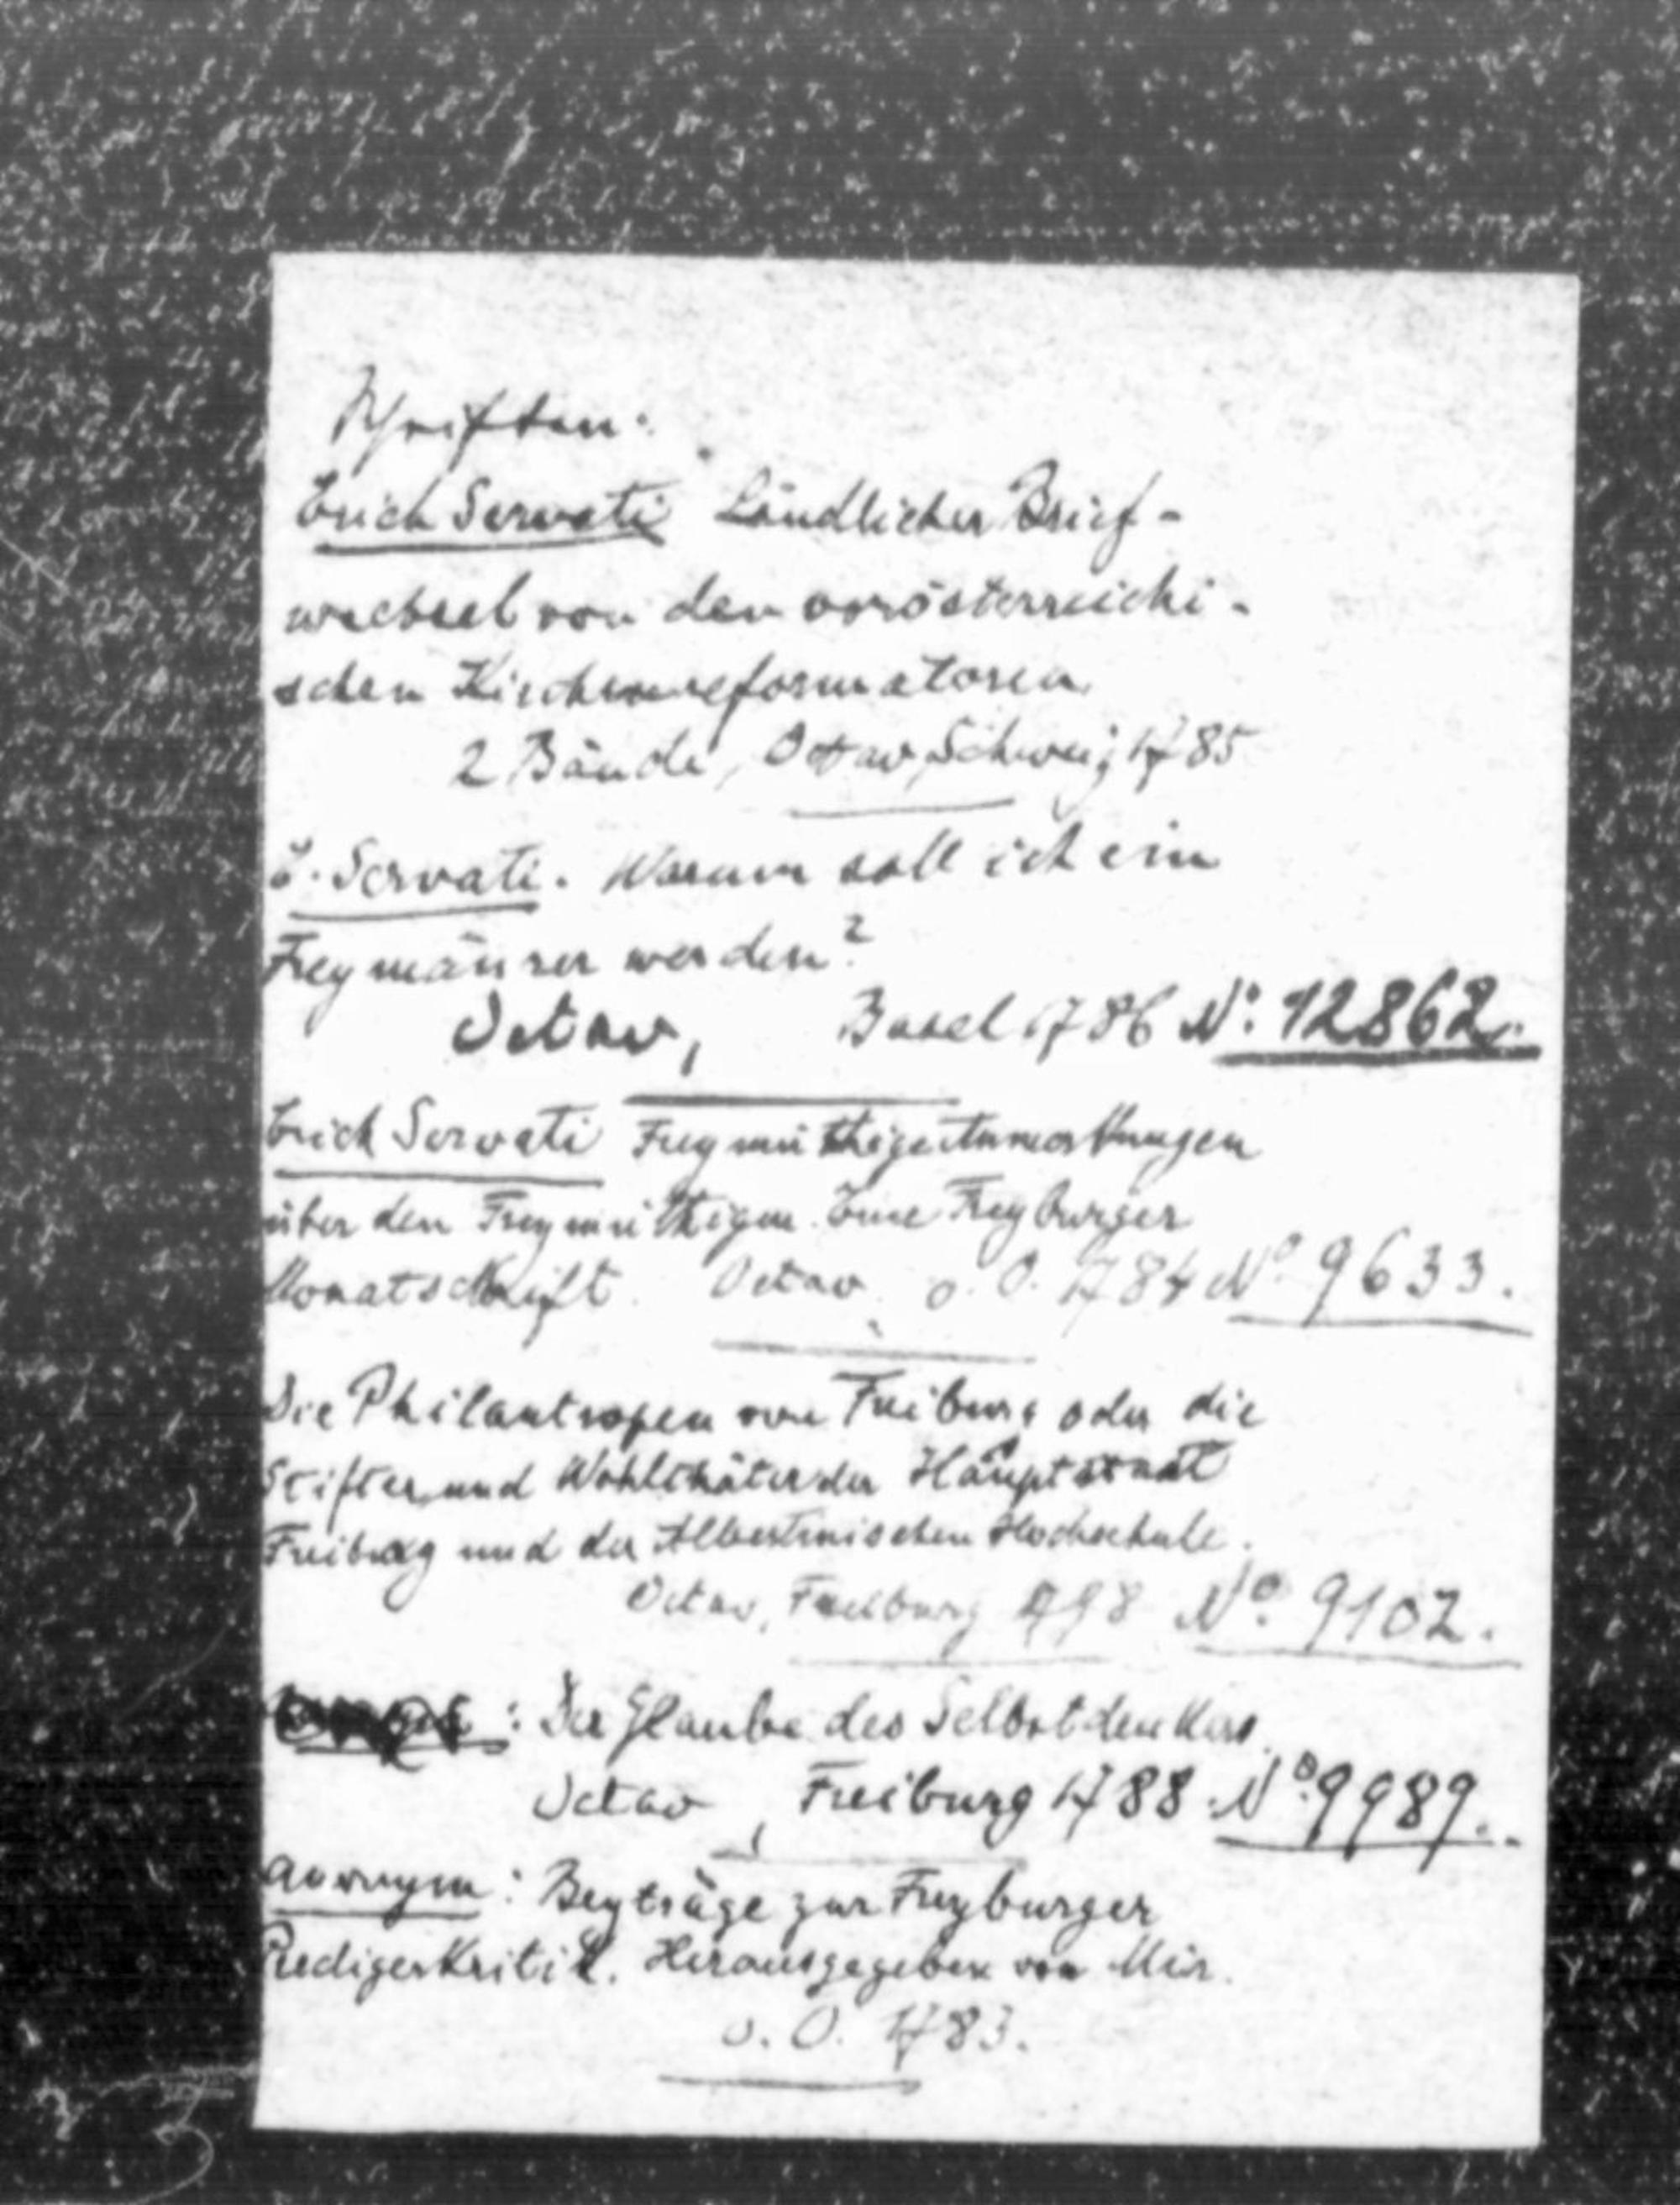 Schriften:
Erich Servati Ländlicher Brief-
wechsel von den vorösterreichi-
schen Kirchenreformatoren
2 Bände, Octav, Schweiz 1785
E. Servati. Warum soll ich ein
Freymäurer werden?
Octav, Basel 1786 No. 12862.
Erich Servati Freymüthige Anmerkungen
über den Freymüthigen. Eine Freyburger
Monatschrift. Octav. o. O. 1784 No. 9633.
Die Philantropen von Freiburg oder die
Stifter und Wohlthäter der Hauptstadt
Freiburg und der Albertinischen Hochschule.
Octav, Freiburg No. 9102.
: Der Glaube des Selbstdenkers.
Octav, Freiburg 1788 No. 9989.
anonym: Beyträge zur Freyburger
Predigerkritik. Herausgegeben von Mir.
o. O. 1783.